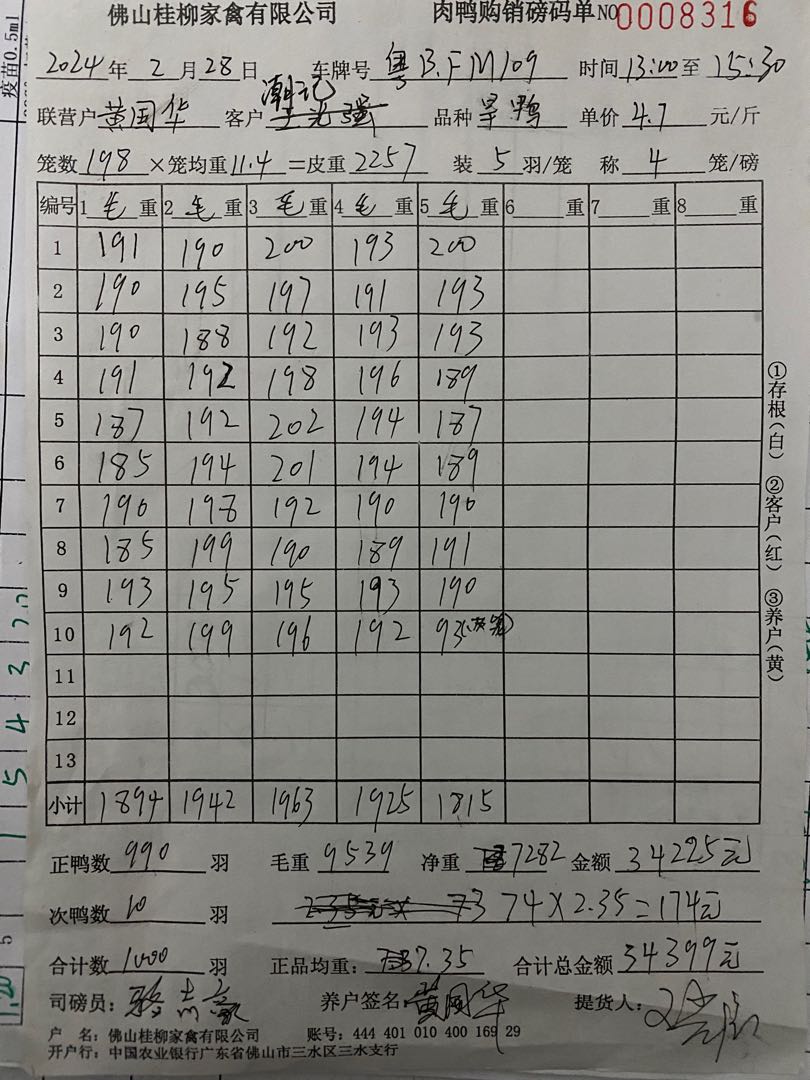 佛山桂柳家禽有限公司 肉鸭购销磅码单 NO 0008316
2024年2月28日 车牌号 粤B.FM109 时间13:00至15:30
潮记
联营户 黄国华 客户 王光强 品种 旱鸭 单价 4.7 元/斤
笼数198×笼均重11.4=皮重2257 装5羽/笼 称4笼/磅
编号 1毛重 2毛重 3毛重 4毛重 5毛重 6重 7重 8重
1 191 190 200 193 200
2 190 195 197 191 193
3 190 188 192 193 193
4 191 192 198 196 189
5 187 192 202 194 187
6 185 194 201 194 189
7 190 198 192 190 190
8 185 199 190 189 191
9 193 195 195 193 190
10 192 199 196 192 93
11
12
13
小计 1894 1942 1963 1925 1815
正鸭数 990 羽 毛重 9539 净重 7282 金额 34225元
次鸭数 10 羽 74×2.35=174元
合计数 1000 羽 正品均重: 7.35 合计总金额 34399元
司磅员: 养户签名: 黄国华 提货人:
户 名: 佛山桂柳家禽有限公司 账号: 444 401 010 400 169 29
开户行: 中国农业银行广东省佛山市三水区三水支行
①存根(白) ②客户(红) ③养户(黄)
疫苗0.5ml